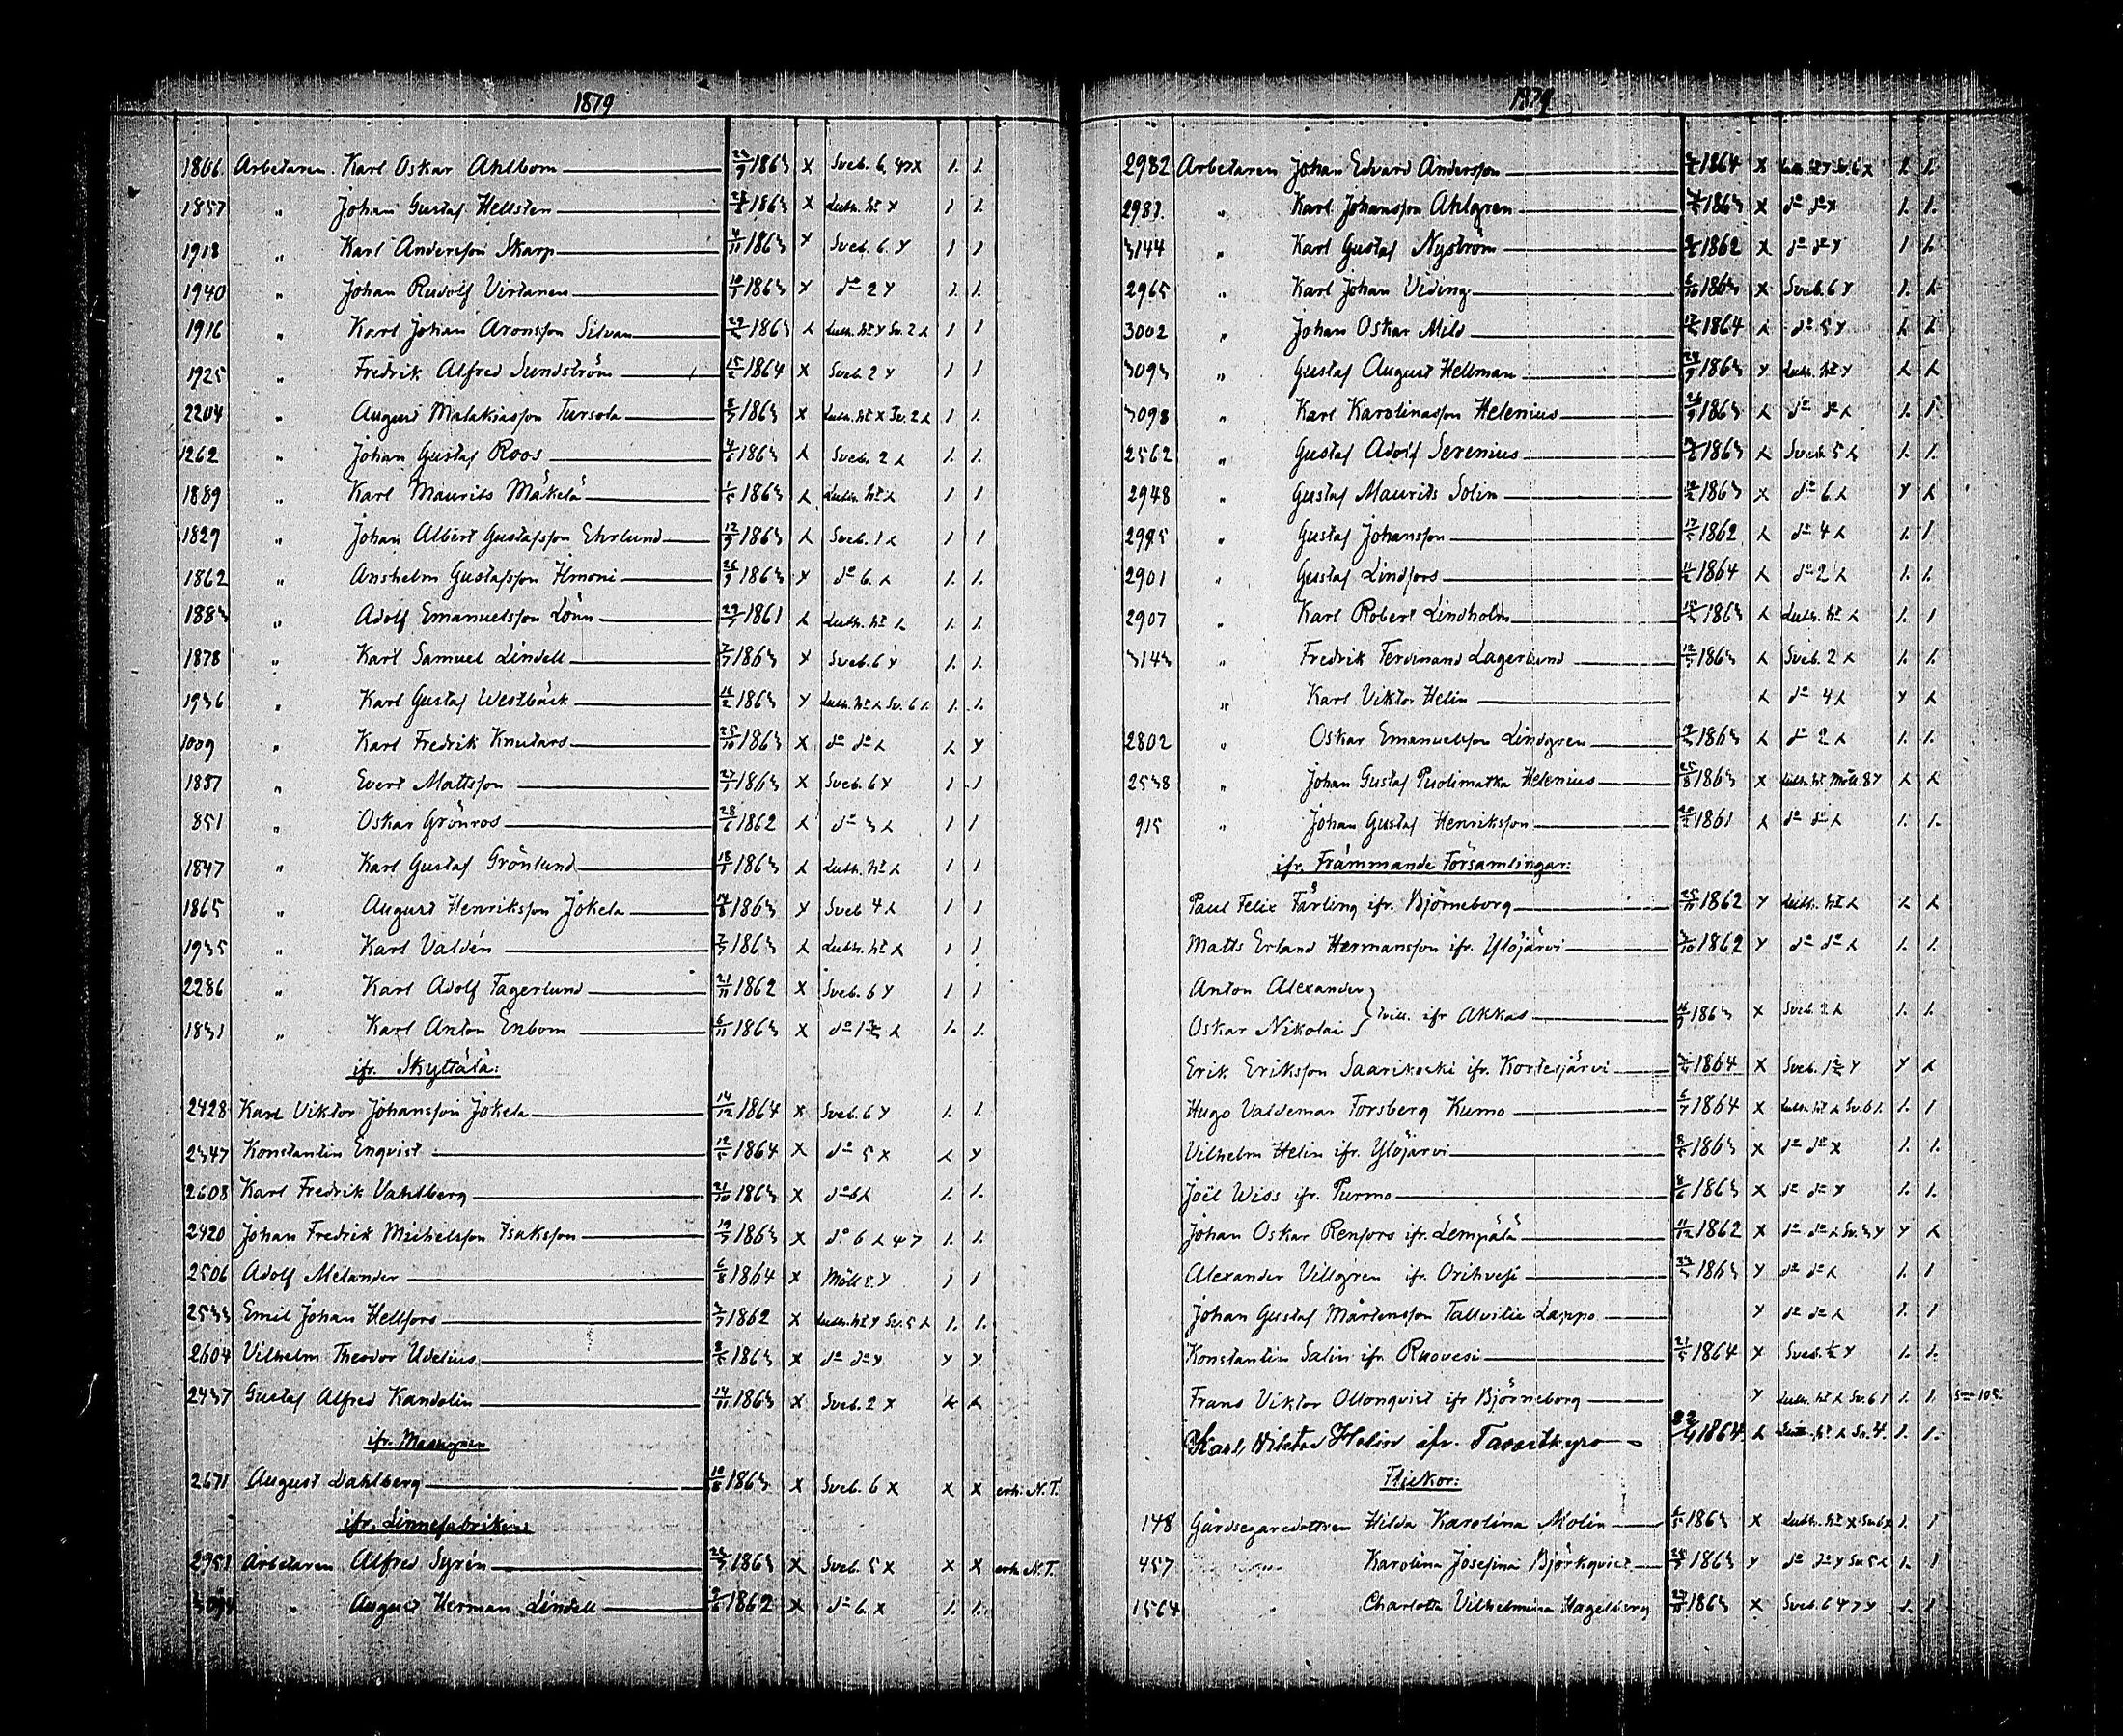 1879
1806 Arbetaren Karl Oskar Ahlbom 1863 x Sveb. 6, 4 7 x 1. 1.
1857 " Johan Gustaf Hellsten 1863 x Luth. ht y 1 1.
1913 " Karl Andersson Skarp 4/11 1863 y Sveb. 6. y 1 1.
1940 " Johan Rudolf Virtanen 1863 y do 2 y 1. 1.
1916 " Karl Johan Aronsson Silvan 1863 λ Luth. ht y Sv. 2 λ 1 1
1925 " Fredrik Alfred Sundström 15/2 1864 x Sveb. 2 y 1 1
2204 " August Malakiasson Tursola 1863 x Luth. ht x Sv. 2 λ 1 1.
1262 " Johan Gustaf Roos 1863 λ Sveb. 2 λ 1. 1.
1889 " Karl Maurits Mäkelä 1/5 1863 λ Luth. ht λ 1 1
1829 " Johan Albert Gustafsson Ehrlund 12/9 1863 λ Sveb. 1 λ 1 1
1862 " Anshelm Gustafsson Ilmoni 26/9 1863 y do 6. λ 1. 1.
1883 " Adolf Emanuelsson Lönn 1861 λ Luth. ht λ 1. 1.
1878 " Karl Samuel Lindell 1863 y Sveb. 6 y 1. 1.
1936 " Karl Gustaf Westbäck 16/2 1863 y Luth. ht λ Sv. 6 λ 1. 1.
1009 " Karl Fredrik Knutars 25/10 1863 x do do λ λ y
1887 " Evert Mattsson 1863 x Sveb. 6 y 1 1
851 " Oskar Grönros 28/6 1862 λ do 3 λ 1 1
1847 " Karl Gustaf Grönlund 1863 λ Luth. ht λ 1 1
1865 " August Henriksson Jokela 1863 y Sveb 4 λ 1 1
1935 " Karl Valdén 1863 λ Luth. ht λ 1 1
2286 " Karl Adolf Fagerlund 21/11 1862 x Sveb. 6 y 1 1
1831 " Karl Anton Enbom 6/11 1863 x do λ 1. 1.
ifr. Skyttälä:
2428 Karl Viktor Johansson Jokela 14/12 1864 x Sveb. 6 y 1. 1.
2347 Konstantin Enqvist 12/5 1864 x do 5 x λ y
2608 Karl Fredrik Vahlberg 21/10 1863 x do 6 λ 1. 1.
2420 Johan Fredrik Michelsson Isaksson 1863 x do 6 λ 4 7 1. 1.
2506 Adolf Melander 6/8 1864 x Möll 8. y 1 1
2533 Emil Johan Hellfors 1862 x Luth. ht y Sv. 5 λ 1. 1.
2604 Vilhelm Theodor Udelius 1863 x do do y y y
2437 Gustaf Alfred Kandolin 14/11 1863 x Sveb. 2 x λ λ
ifr.
2671 August Dahlberg 10/8 1863 x Sveb. 6 x x x erh. N.T.
ifr. Linnefabriken:
2951 Arbetaren Alfred Syrén 1863 x Sveb. 5 x x x erh. N.T.
" August Herman Lindell 1862 x do 6. x 1. 1.
1879
2982 Arbetaren Johan Edvard Andersson 1864 x Luth. ht y Sv. 6 x 1. 1.
2981. " Karl Johansson Ahlgren 1863 x do do x 1. 1.
3144 " Karl Gustaf Nyström 1862 x do do y 1 1.
2965 " Karl Johan Viding 1863 x Sveb. 6 y 1. λ
3002 " Johan Oskar Mild 1864 λ do 5 y λ λ
3093 " Gustaf August Hellman 24/9 1863 y Luth. ht y λ λ
3098 " Karl Karolinasson Helenius 26/9 1863 λ do do λ 1. 1.
2562 " Gustaf Adolf Serenius 1863 λ Sveb. 5 λ 1. 1.
2948 " Gustaf Maurits Solin 1863 x do 6 λ y λ
2985 " Gustaf Johansson 1862 λ do 4 λ 1. 1
2901 " Gustaf Lindfors 1864 λ do 2 λ 1. 1.
2907 " Karl Robert Lindholm 1863 λ Luth. ht λ 1. 1
3143 " Fredrik Ferdinand Lagerlund 1863 λ Sveb. 2 λ 1. 1.
" Karl Viktor Helin λ do 4 λ y λ
2802 " Oskar Emanuelsson Lindgren 1863 λ do 2 λ 1. 1.
2538 " Johan Gustaf Puolimatka Helenius 25/8 1863 x Luth. ht Möll. 8 y λ λ
915 " Johan Gustaf Henriksson 1861 λ do do λ 1. 1.
ifr. Främmande Församlingar:
Paul Felix Färling ifr. Björneborg 25/11 1862 y Luth. ht λ λ λ
Matts Erland Hermansson ifr. Ylöjärvi 1862 y do do λ 1. 1.
Anton Alexander
Oskar Nikolai } tvill. ifr Akkas 1863 x Sveb. 2 λ 1. 1.
Erik Eriksson Saarikoski ifr. Kortesjärvi 1864 x Sveb. y y λ
Hugo Valdemar Forsberg Kumo 1864 x Luth. ht λ Sv. 6 λ 1. 1
Vilhelm Helin ifr. Ylöjärvi 1863 x do do x 1. 1.
Joël Wiss ifr. Purmo 1863 x do do y 1. 1.
Johan Oskar Renfors ifr. Lempälä 11/12 1862 x do do λ Sv. 3 y y λ
Alexander Villgren ifr. Orihvesi 1863 y do do λ 1. 1
Johan Gustaf Mårtensson Tallvitie Lappo y do do λ 1. 1
Konstantin Salin ifr Ruovesi 1864 x Sveb. 1/2 y 1. 1.
Frans Viktor Ollonqvist ifr Björneborg y Luth. ht λ Sv. 6 1 1. 1. s 105.
Karl Viktor Helin ifr. Tavastkyro 1864. λ Luth. ht λ Sv. 4. 1. 1.
Flickor:
148 Gårdsegaredottren Hilda Karolina Molin 1863 x Luth. ht x Sv 6 x 1. 1
457 " Karolina Josefina Björkqvist 1863 y do do y Sv. 5 λ 1. 1
1564 " Charlotta Vilhelmina Hagelberg 1863 x Sveb. 6 4 7 y 1. 1